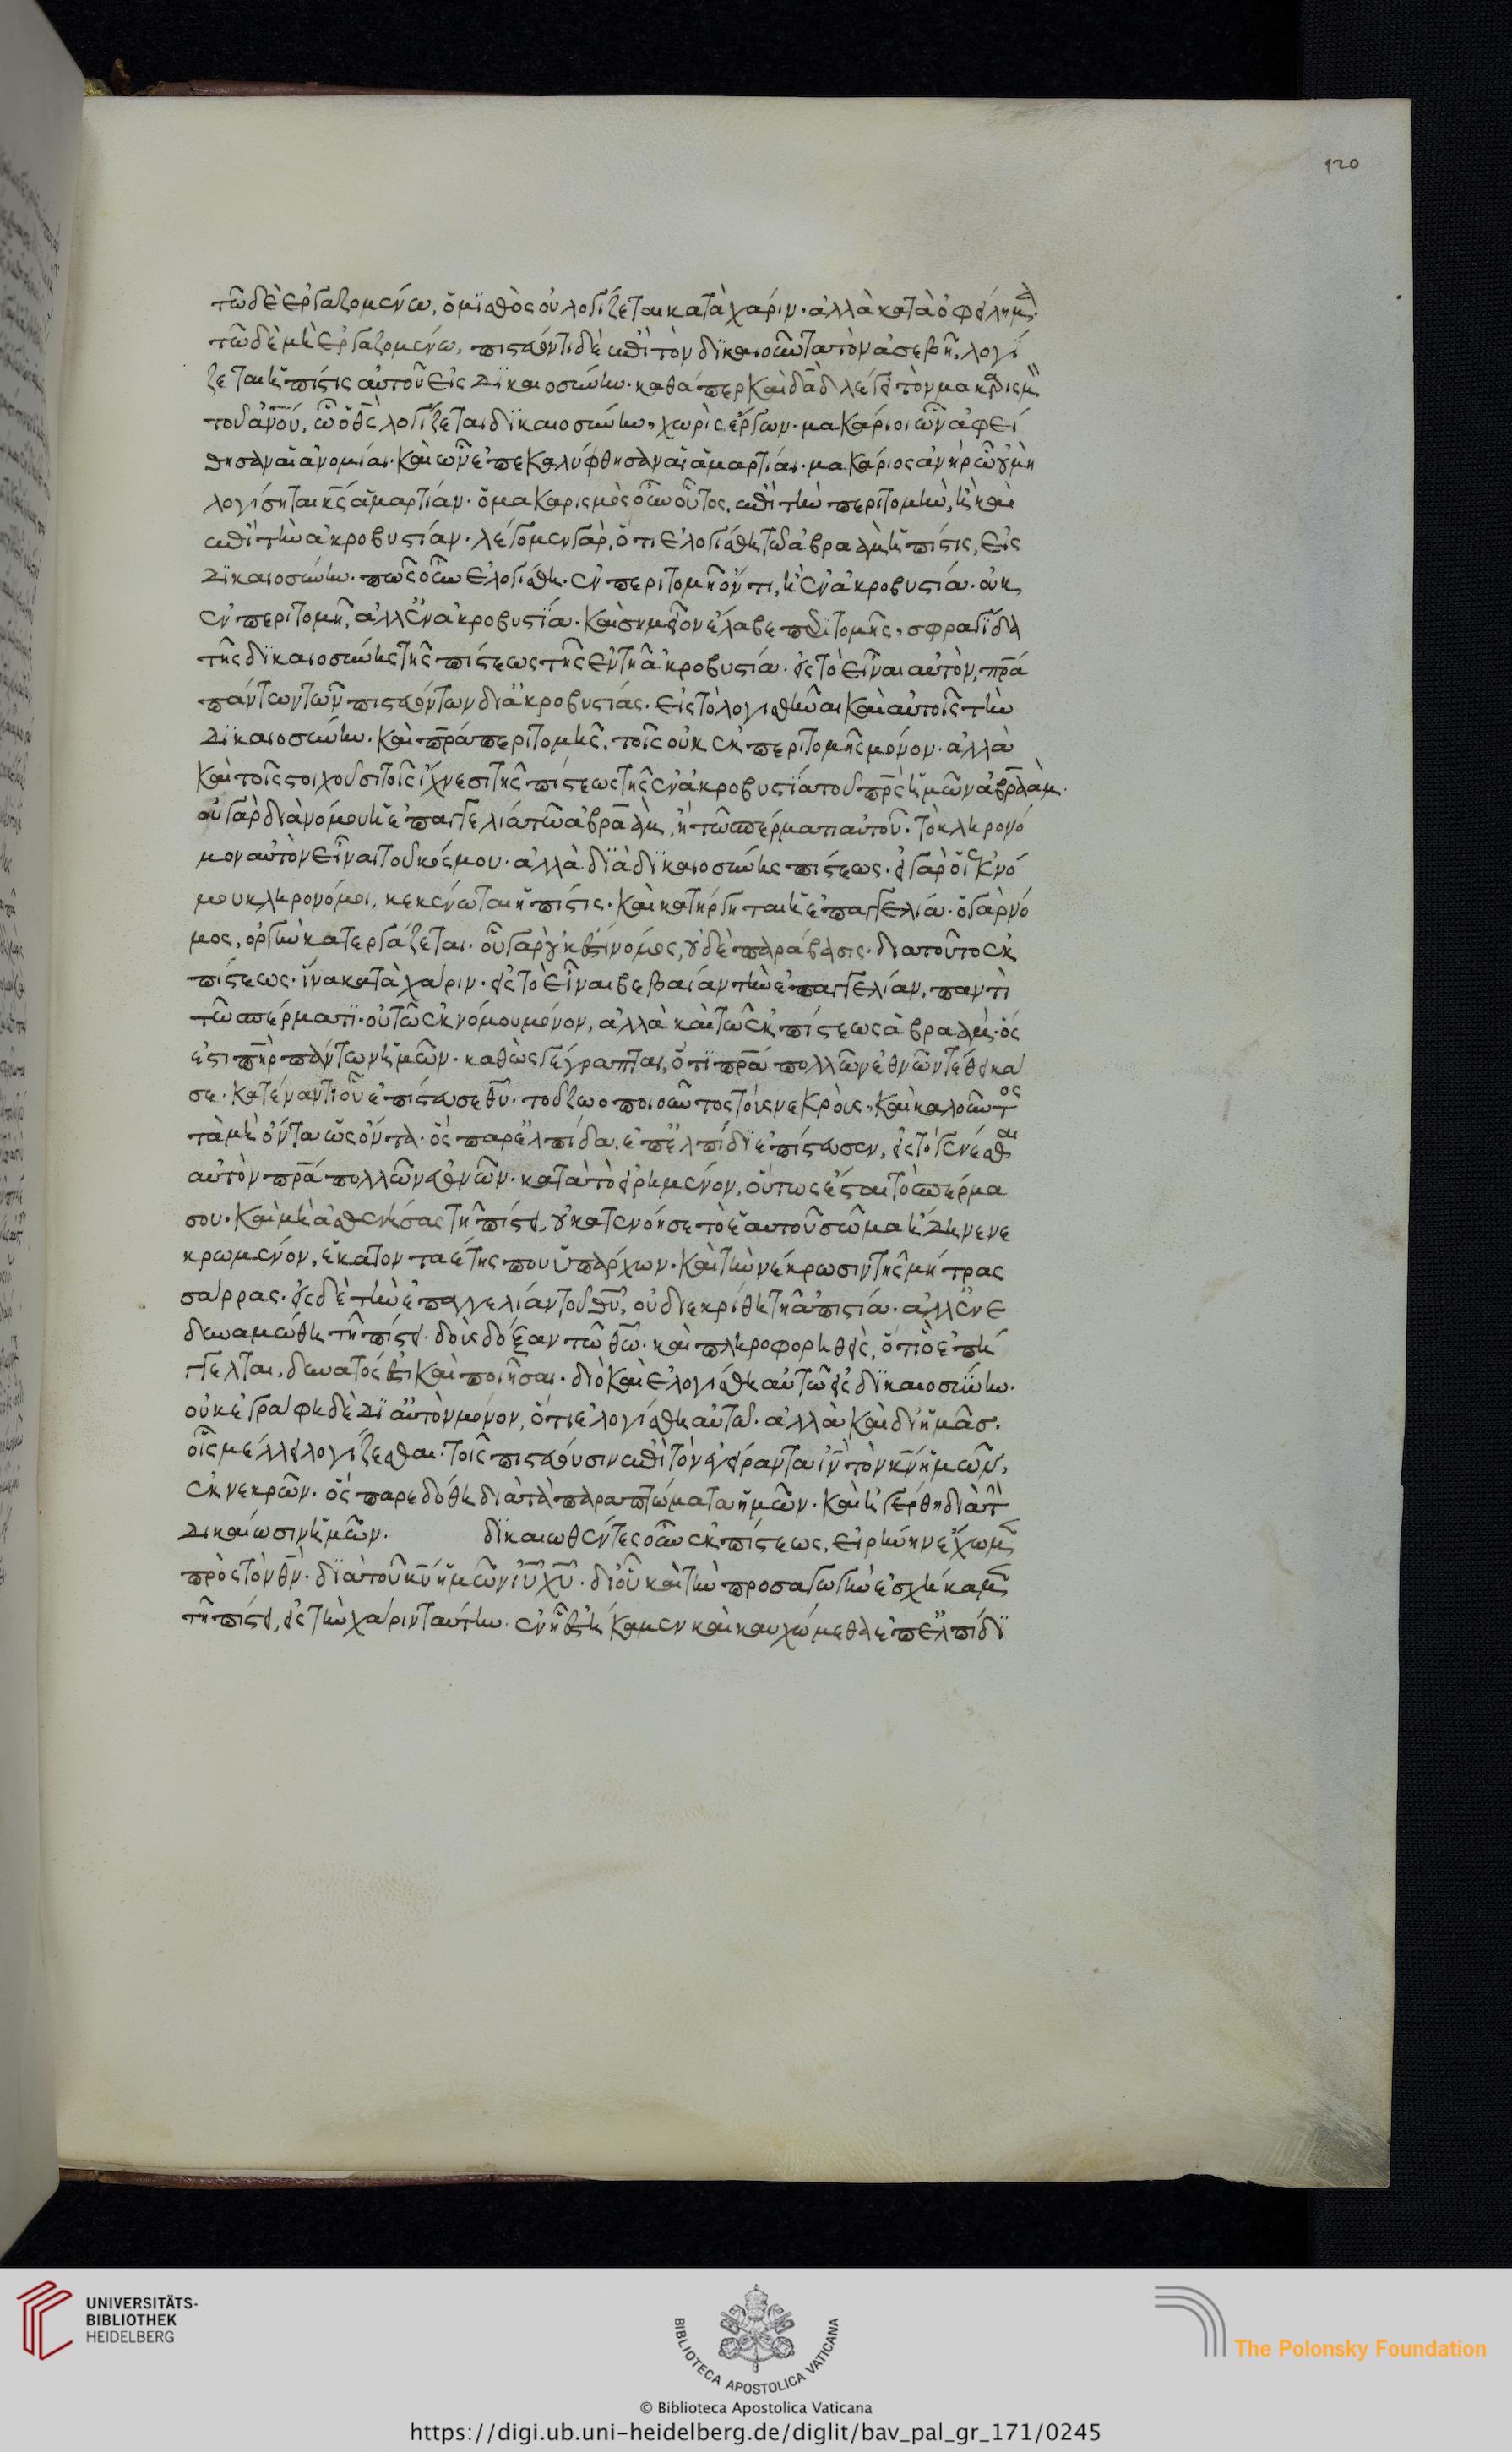 120
τῶ δὲ ἐργαζομένω, ὁ μισθὸς οὐ λογίζεται κατὰ χάριν· ἀλλὰ κατὰ ὀφείλημα·
τῶ δὲ μὴ ἐργαζομένω, πιστεύοντι δὲ ἐπὶ τὸν δικαιοῦντα τὸν ἀσεβῆ, λογί
ζεται ἡ πίστις αὐτοῦ εἰς δικαιοσύνην· καθάπερ καὶ δᾱδ λέγει τὸν μακαρισμὸν
τοῦ ἀνου, ὧ ὁ θς λογίζεται δικαιοσύνην, χωρὶς ἔργων· μακάριοι ὧν ἀφεί
θησαν αἱ ἀνομίαι· καὶ ὧν ἐπεκαλύφθησαν αἱ ἁμαρτίαι· μακάριος ἀνὴρ ὧ οὐ μὴ
λογίσηται κς ἁμαρτίαν· ὁ μακαρισμὸς οὖν οὗτος, ἐπὶ τὴν περιτομὴν, ἢ καὶ
ἐπὶ τὴν ἀκροβυστίαν· λέγομεν γὰρ, ὅτι ἐλογίσθη τῶ ἀβραὰμ ἡ πίστις, εἰς
δικαιοσύνην· πῶς οὖν ἐλογίσθη· ἐν περιτομῆ ὄντι, ἢ ἐν ἀκροβυστία· οὐκ
ἐν περιτομῆ, ἀλλ' ἐν ἀκροβυστία· καὶ σημεῖον ἔλαβε περιτομῆς, σφραγίδα
τῆς δικαιοσύνης τῆς πίστεως τῆς ἐν τῆ ἀκροβυστία· εἰς τὸ εἶναι αὐτὸν, πρα
πάντων τῶν πιστευόντων δι' ἀκροβυστίας· εἰς τὸ λογισθῆναι καὶ αὐτοῖς τὴν
δικαιοσύνην· καὶ πρα περιτομῆς, τοῖς οὐκ ἐκ περιτομῆς μόνον· ἀλλὰ
καὶ τοῖς στοιχοῦσι τοῖς ἴχνεσι τῆς πίστεως τῆς ἐν ἀκροβυστία τοῦ πρς ἡμῶν ἀβραάμ·
οὐ γὰρ διὰ νόμου ἡ ἐπαγγελία τῶ ἀβραὰμ, ἢ τῶ σπέρματι αὐτοῦ· τὸ κληρονό
μον αὐτὸν εἶναι τοῦ κόσμου· ἀλλὰ διὰ δικαιοσύνης πίστεως· εἰ γὰρ οἱ ἐκ νό
μου κληρονόμοι, κεκένωται ἡ πίστις· καὶ κατήργηται ἡ ἐπαγγελία· ὁ γὰρ νό
μος, ὀργὴν κατεργάζεται· οὗ γὰρ οὐκ ἔστι νόμος, οὐδὲ παράβασις· διατοῦτο ἐκ
πίστεως· ἵνα κατὰ χάριν· εἰς τὸ εἶναι βεβαίαν τὴν ἐπαγγελίαν, παντὶ
τῶ σπέρματι· οὐ τῶ ἐκ νόμου μόνον, ἀλλὰ καὶ τῶ ἐκ πίστεως ἀβραὰμ· ὅς
ἐστι πηρ πάντων ἡμῶν· καθὼς γέγραπται, ὅτι πρα πολλῶν ἐθνῶν τέθεικά
σε· κατέναντι οὗ ἐπίστευσε θυ· τοῦ ζωοποιοῦντος τοὺς νεκροὺς, καὶ καλοῦντος
τὰ μὴ ὄντα ὡς ὄντα· ὃς παρ' ἐλπίδα, ἐπ' ἐλπίδι ἐπίστευσεν, εἰς τὸ γενέσθαι
αὐτὸν πρα πολλῶν ἐθνῶν· κατὰ τὸ εἰρημένον, οὕτως ἔσται τὸ σπέρμα
σου· καὶ μὴ ἀσθενήσας τῆ πίστει, οὐ κατενόησε τὸ ἑαυτοῦ σῶμα ἤδη νενε
κρωμένον, ἑκατονταέτης που ὑπάρχων· καὶ τὴν νέκρωσιν τῆς μήτρας
σάρρας· εἰς δὲ τὴν ἐπαγγελίαν τοῦ θυ, οὐ διεκρίθη τῆ ἀπιστία· ἀλλ' ἐνε
δυναμώθη τῆ πίστει· δοὺς δόξαν τῶ θω· καὶ πληροφορηθεὶς, ὅτι ὃ ἐπήγ
γελται, δυνατός ἐστι καὶ ποιῆσαι· διὸ καὶ ἐλογίσθη αὐτῶ εἰς δικαιοσύνην·
οὐκ ἐγράφη δὲ δι' αὐτὸν μόνον, ὅτι ἐλογίσθη αὐτῶ· ἀλλὰ καὶ δι' ἡμᾶς·
οἷς μέλλει λογίζεσθαι· τοῖς πιστεύουσιν ἐπὶ τὸν ἐγείραντα ἰν τὸν κν ἡμῶν,
ἐκ νεκρῶν· ὃς παρεδόθη διὰ τὰ παραπτώματα ἡμῶν· καὶ ἠγέρθη διὰ τὴν
δικαίωσιν ἡμῶν· δικαιωθέντες οὖν ἐκ πίστεως, εἰρήνην ἔχωμεν
πρὸς τὸν θν· διὰ τοῦ κυ ἡμῶν ιυ χυ· δι' οὗ καὶ τὴν προσαγωγὴν ἐσχήκαμεν
τῆ πίστει, εἰς τὴν χάριν ταύτην· ἐν ἧ ἑστήκαμεν καὶ καυχώμεθα ἐπ' ἐλπίδι
UNIVERSITÄTS-
BIBLIOTHEK
HEIDELBERG
BIBLIOTECA APOSTOLICA VATICANA
The Polonsky Foundation
© Biblioteca Apostolica Vaticana
https://digi.ub.uni-heidelberg.de/diglit/bav_pal_gr_171/0245